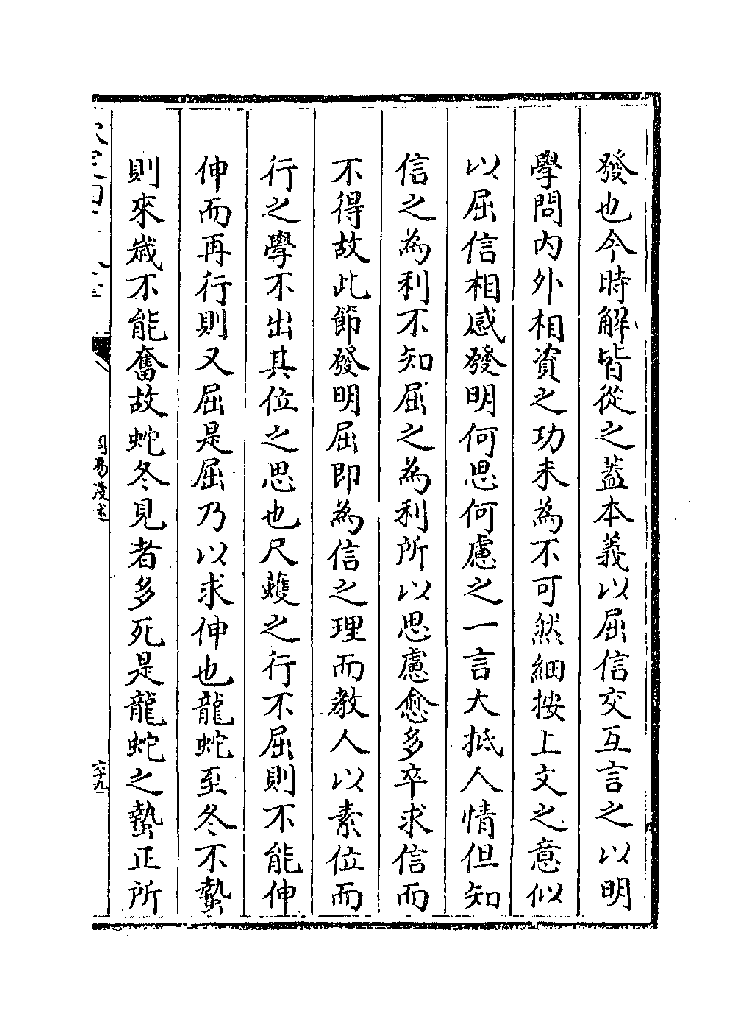 發也今時解皆從之蓋本義以屈信交互言之以明
學問內外相資之功未為不可然細按上文之意似
以屈信相感發明何思何慮之一言大抵人情但知
信之為利不知屈之為利所以思慮愈多卒求信而
不得故此節發明屈即為信之理而教人以素位而
行之學不出其位之思也尺蠖之行不屈則不能伸
伸而再行則又屈是屈乃以求伸也龍蛇至冬不蟄
則來歲不能奮故蛇冬見者多死是龍蛇之蟄正所
周易淺述
六十九